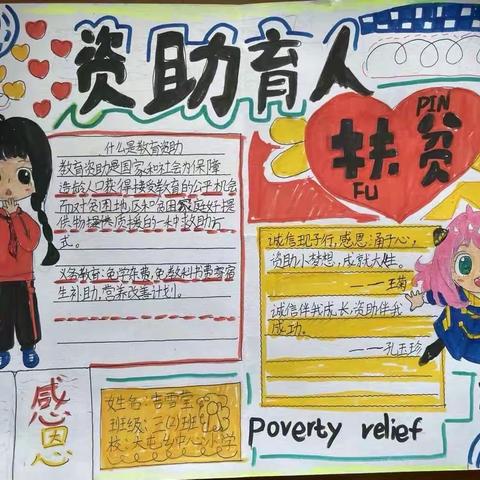 资助育人
PIN
扶贫
FU
什么是教育资助
教育资助是国家和社会为保障
适龄人口获得接受教育的公平机会
面对贫困地区和贫困家庭好提
供物提供质援的一种救助方
式。
义务教育:免学杂费,免教科书费寄宿
生补助,营养改善计划。
诚信玑子行,感恩涌于心,
资助小梦想,成就大雎。
——王菊
诚信伴我成长,资助伴我
成功。
——孔玉珍
感恩
姓名:吉雪莹
班级:三(2)班
校:大屯台中心小学
poverty relief